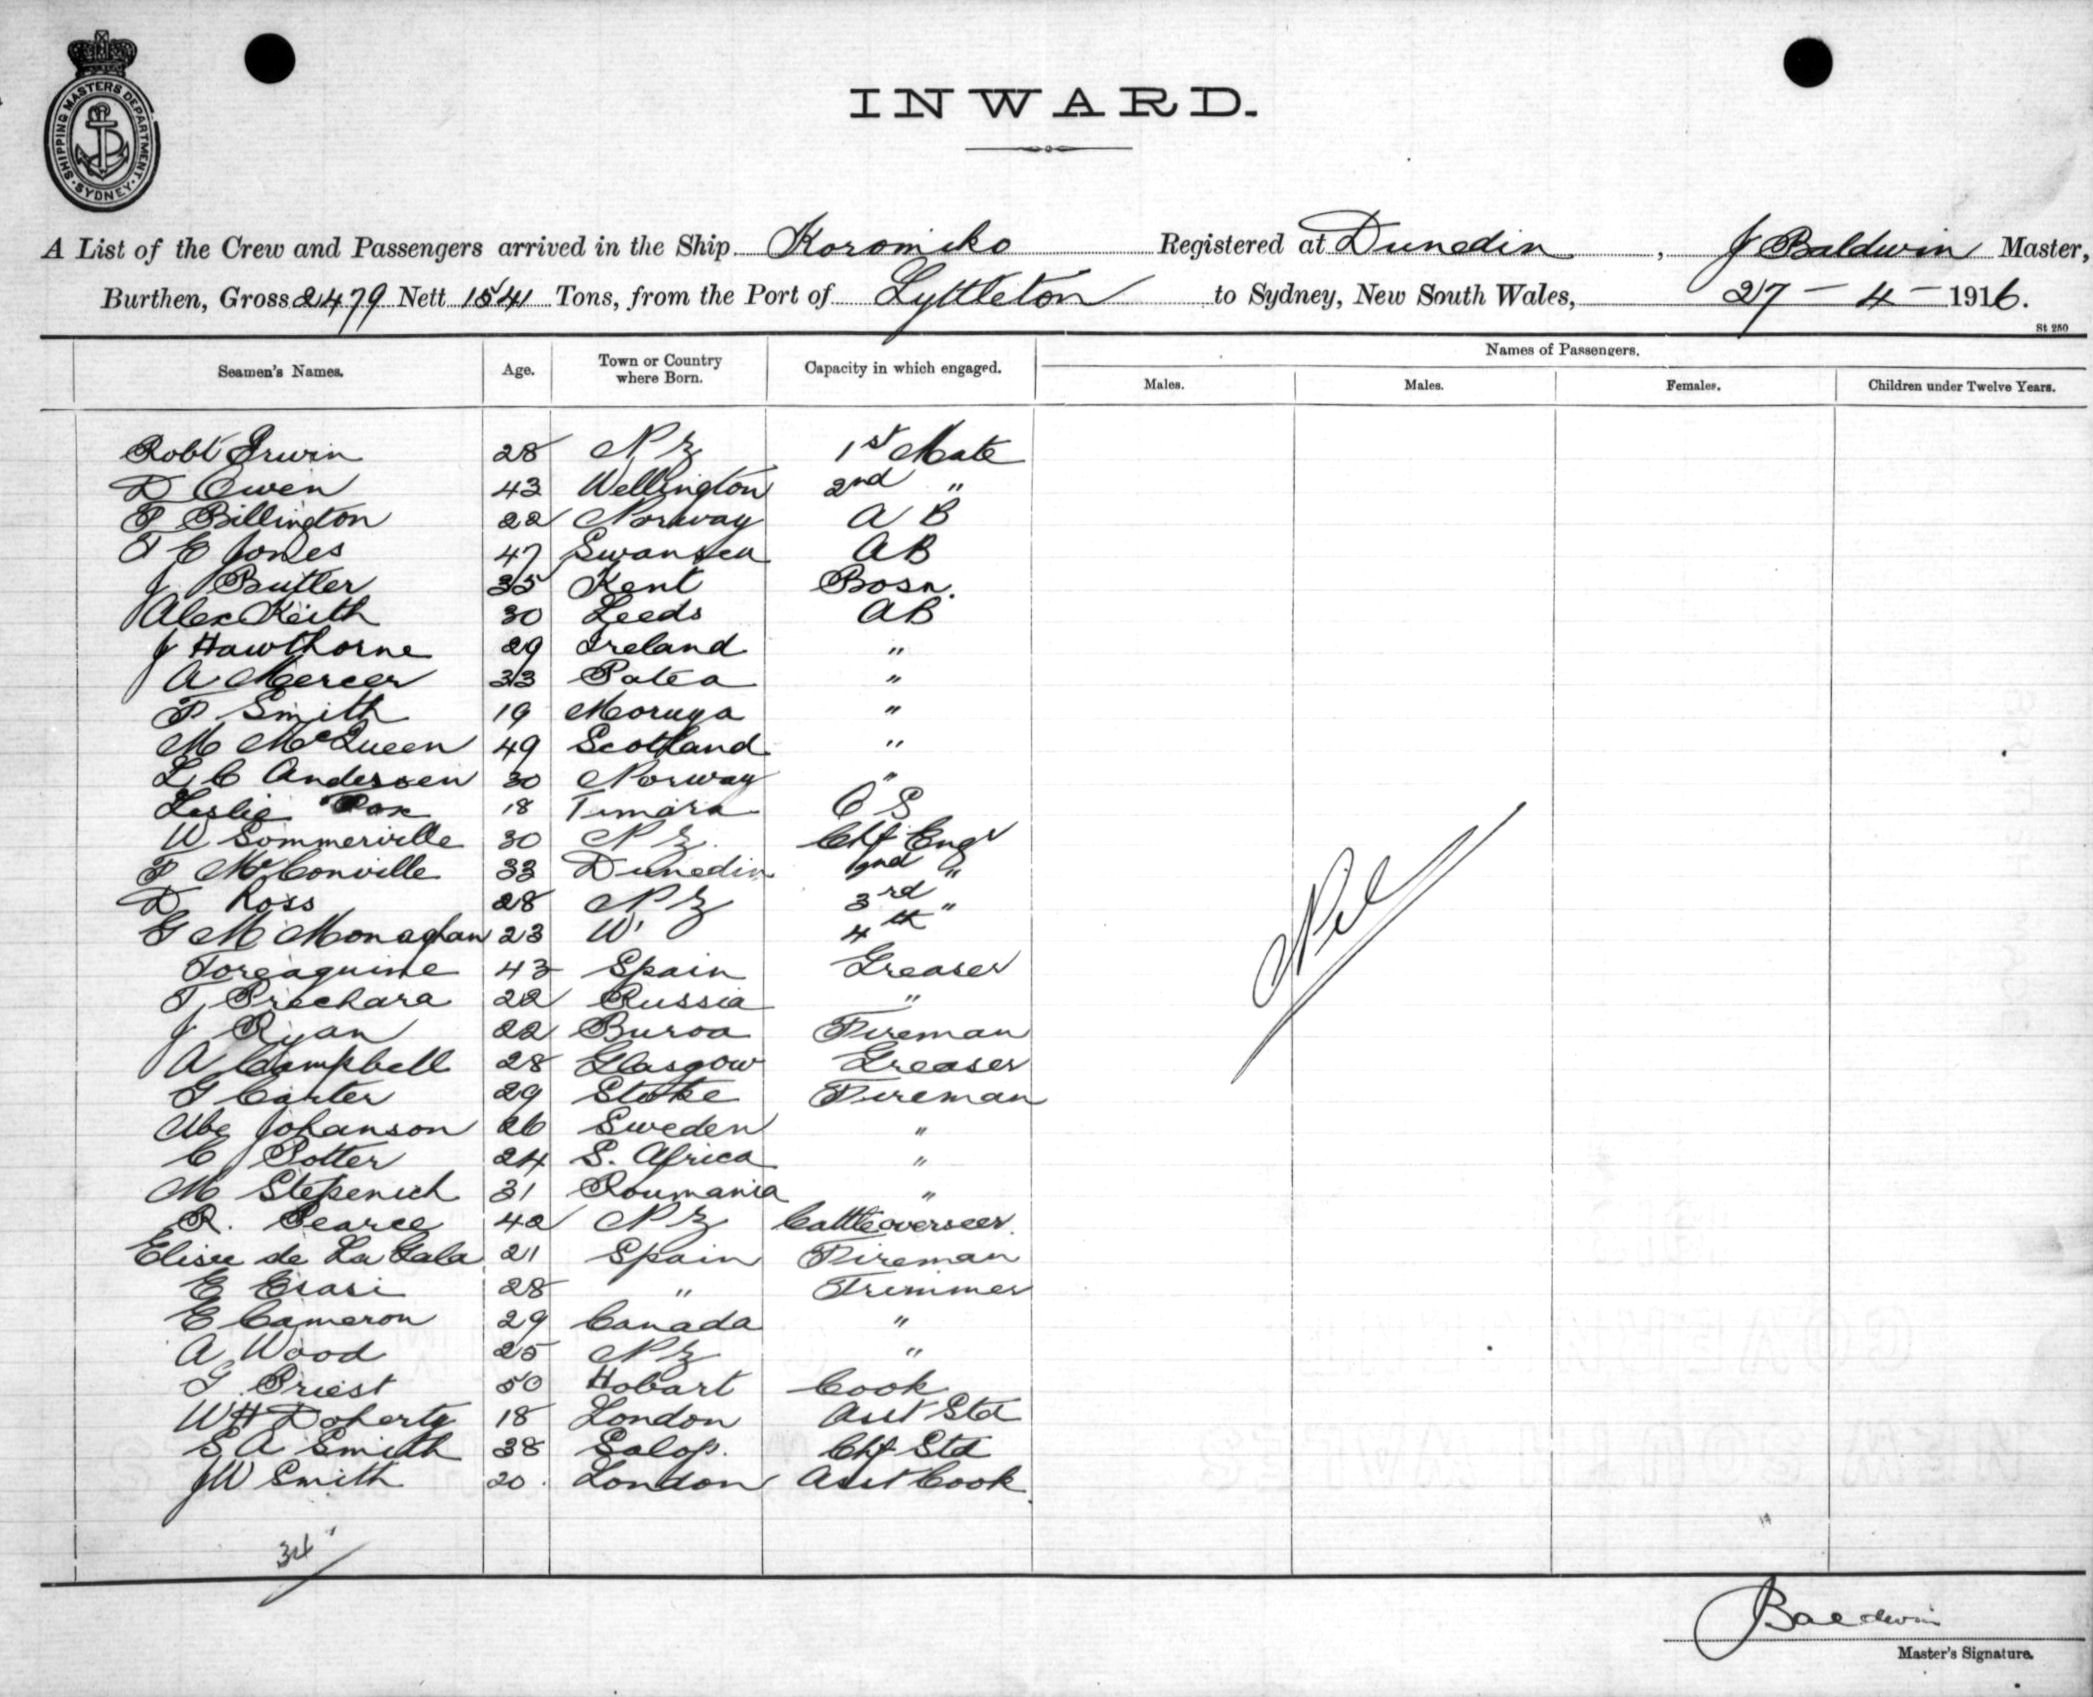 SHIPPING MASTERS DEPARTMENT
SYDNEY
INWARD.
A List of the Crew and Passengers arrived in the Ship Koromiko Registered at Dunedin, J Baldwin Master,
Burthen, Gross 2479 Nett 1541 Tons, from the Port of Lyttleton to Sydney, New South Wales, 27 - 4 - 1916.
St 250
Seamen's Names. Age. Town or Country where Born. Capacity in which engaged. Names of Passengers.
Males. Males. Females. Children under Twelve Years.
Robt Erwin 28 N Z 1st Mate
D Owen 43 Wellington 2nd "
P Billington 22 Norway A B
T E Jones 47 Swansea AB
J Butler 35 Kent Bosn.
Alex Keith 30 Leeds AB
J Hawthorne 29 Ireland "
A Mercer 33 Patea "
F Smith 19 Moruya "
M McQueen 49 Scotland "
L C Andersen 30 Norway "
Leslie 18 Timara O S
W Sommerville 30 N Z. Chf Engr
P McConville 33 Dunedin 2nd "
D Ross 28 N Z 3rd "
G M Monaghan 23 4th
Toreaguine 43 Spain Greaser
T Prechara 22 Russia "
J Ryan 22 Buroa Fireman
A Campbell 28 Glasgow Greaser
G Carter 29 Stoke Fireman
Abe Johanson 26 Sweden "
C Potter 24 S. Africa "
M Stepenich 31 Roumania "
R. Pearce 42 N Z Cattle overseer.
Elisee de La Gala 21 Spain Fireman
E Erasi 28 " Trimmer
E Cameron 29 Canada "
A Wood 25 N Z "
G Priest 50 Hobart Cook
WH Doherty 18 London Asst Std
S A Smith 38 Salop. Chf Std
JW Smith 20. London Asst Cook.
Nil
34
Baldwin
Master's Signature.